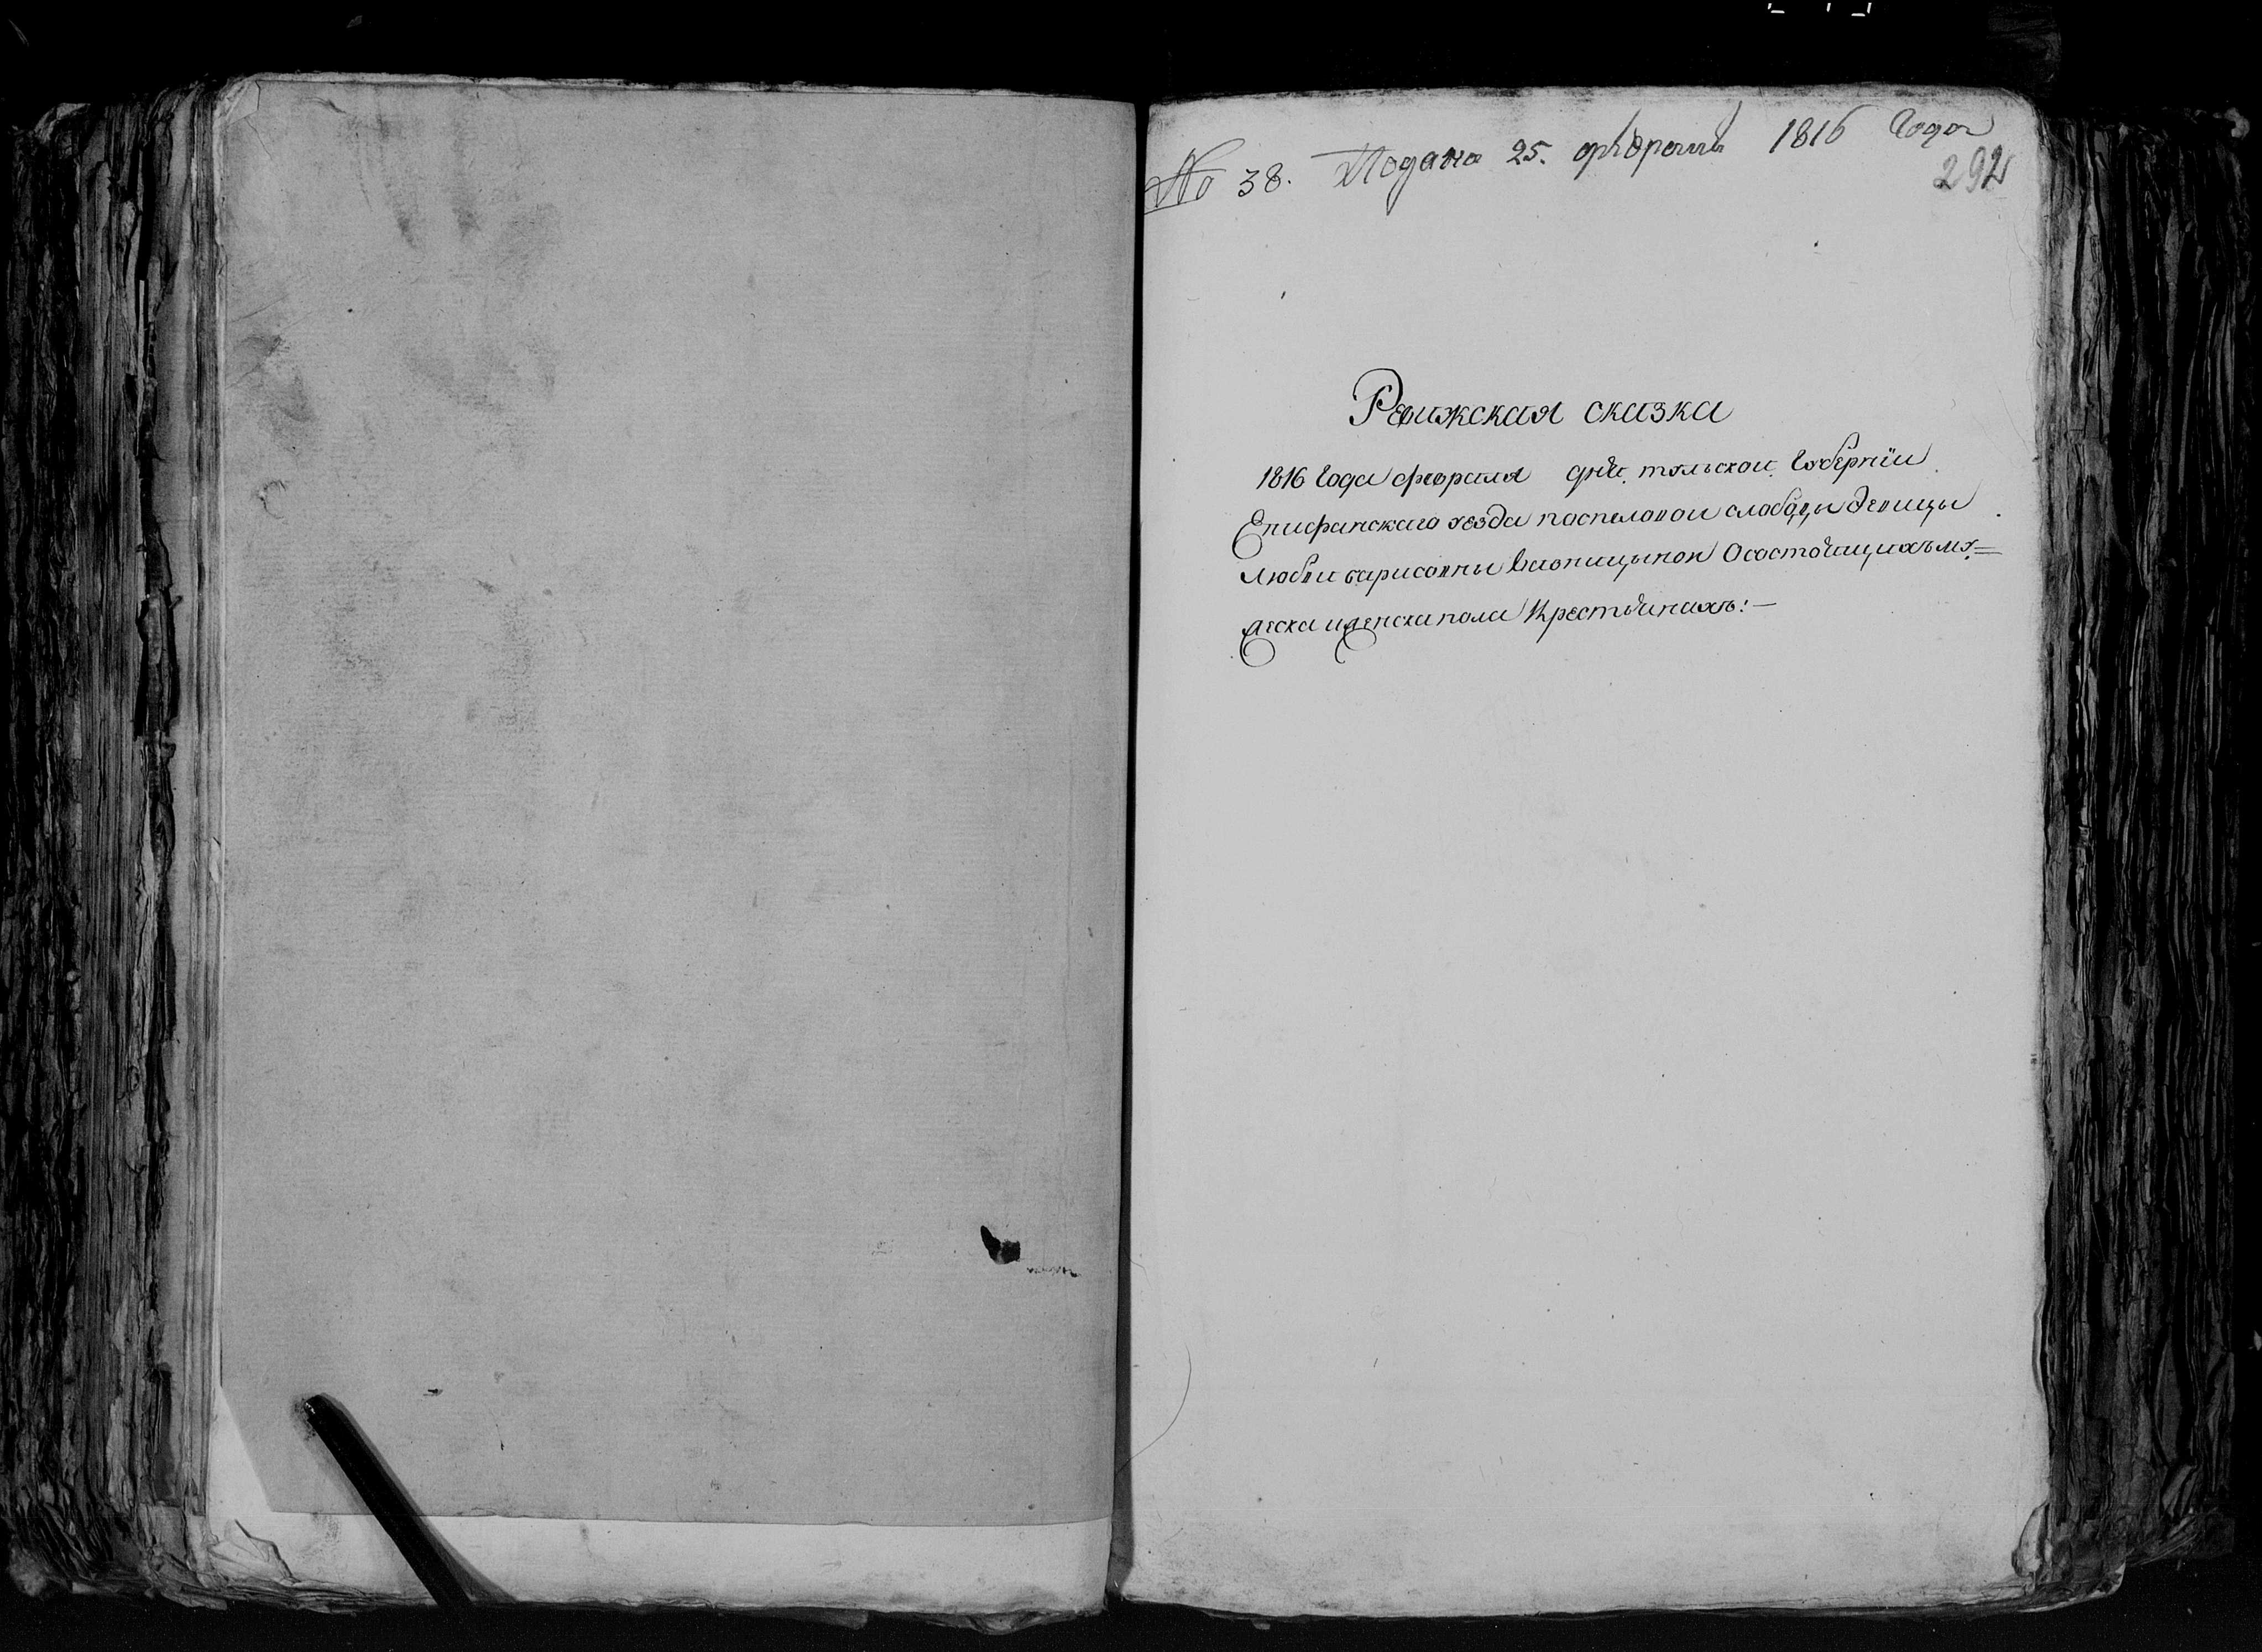 № 38. Подана 25. февраля 1816 Года
292
Ревижская сказка
1816 Года февраля дня тульскои Губернїи
Епифанскаго уезда поспеловои слабоды девицы
Любви барисовны Осостоящихъ му=
жеска иженска пола Крестьянахъ:—